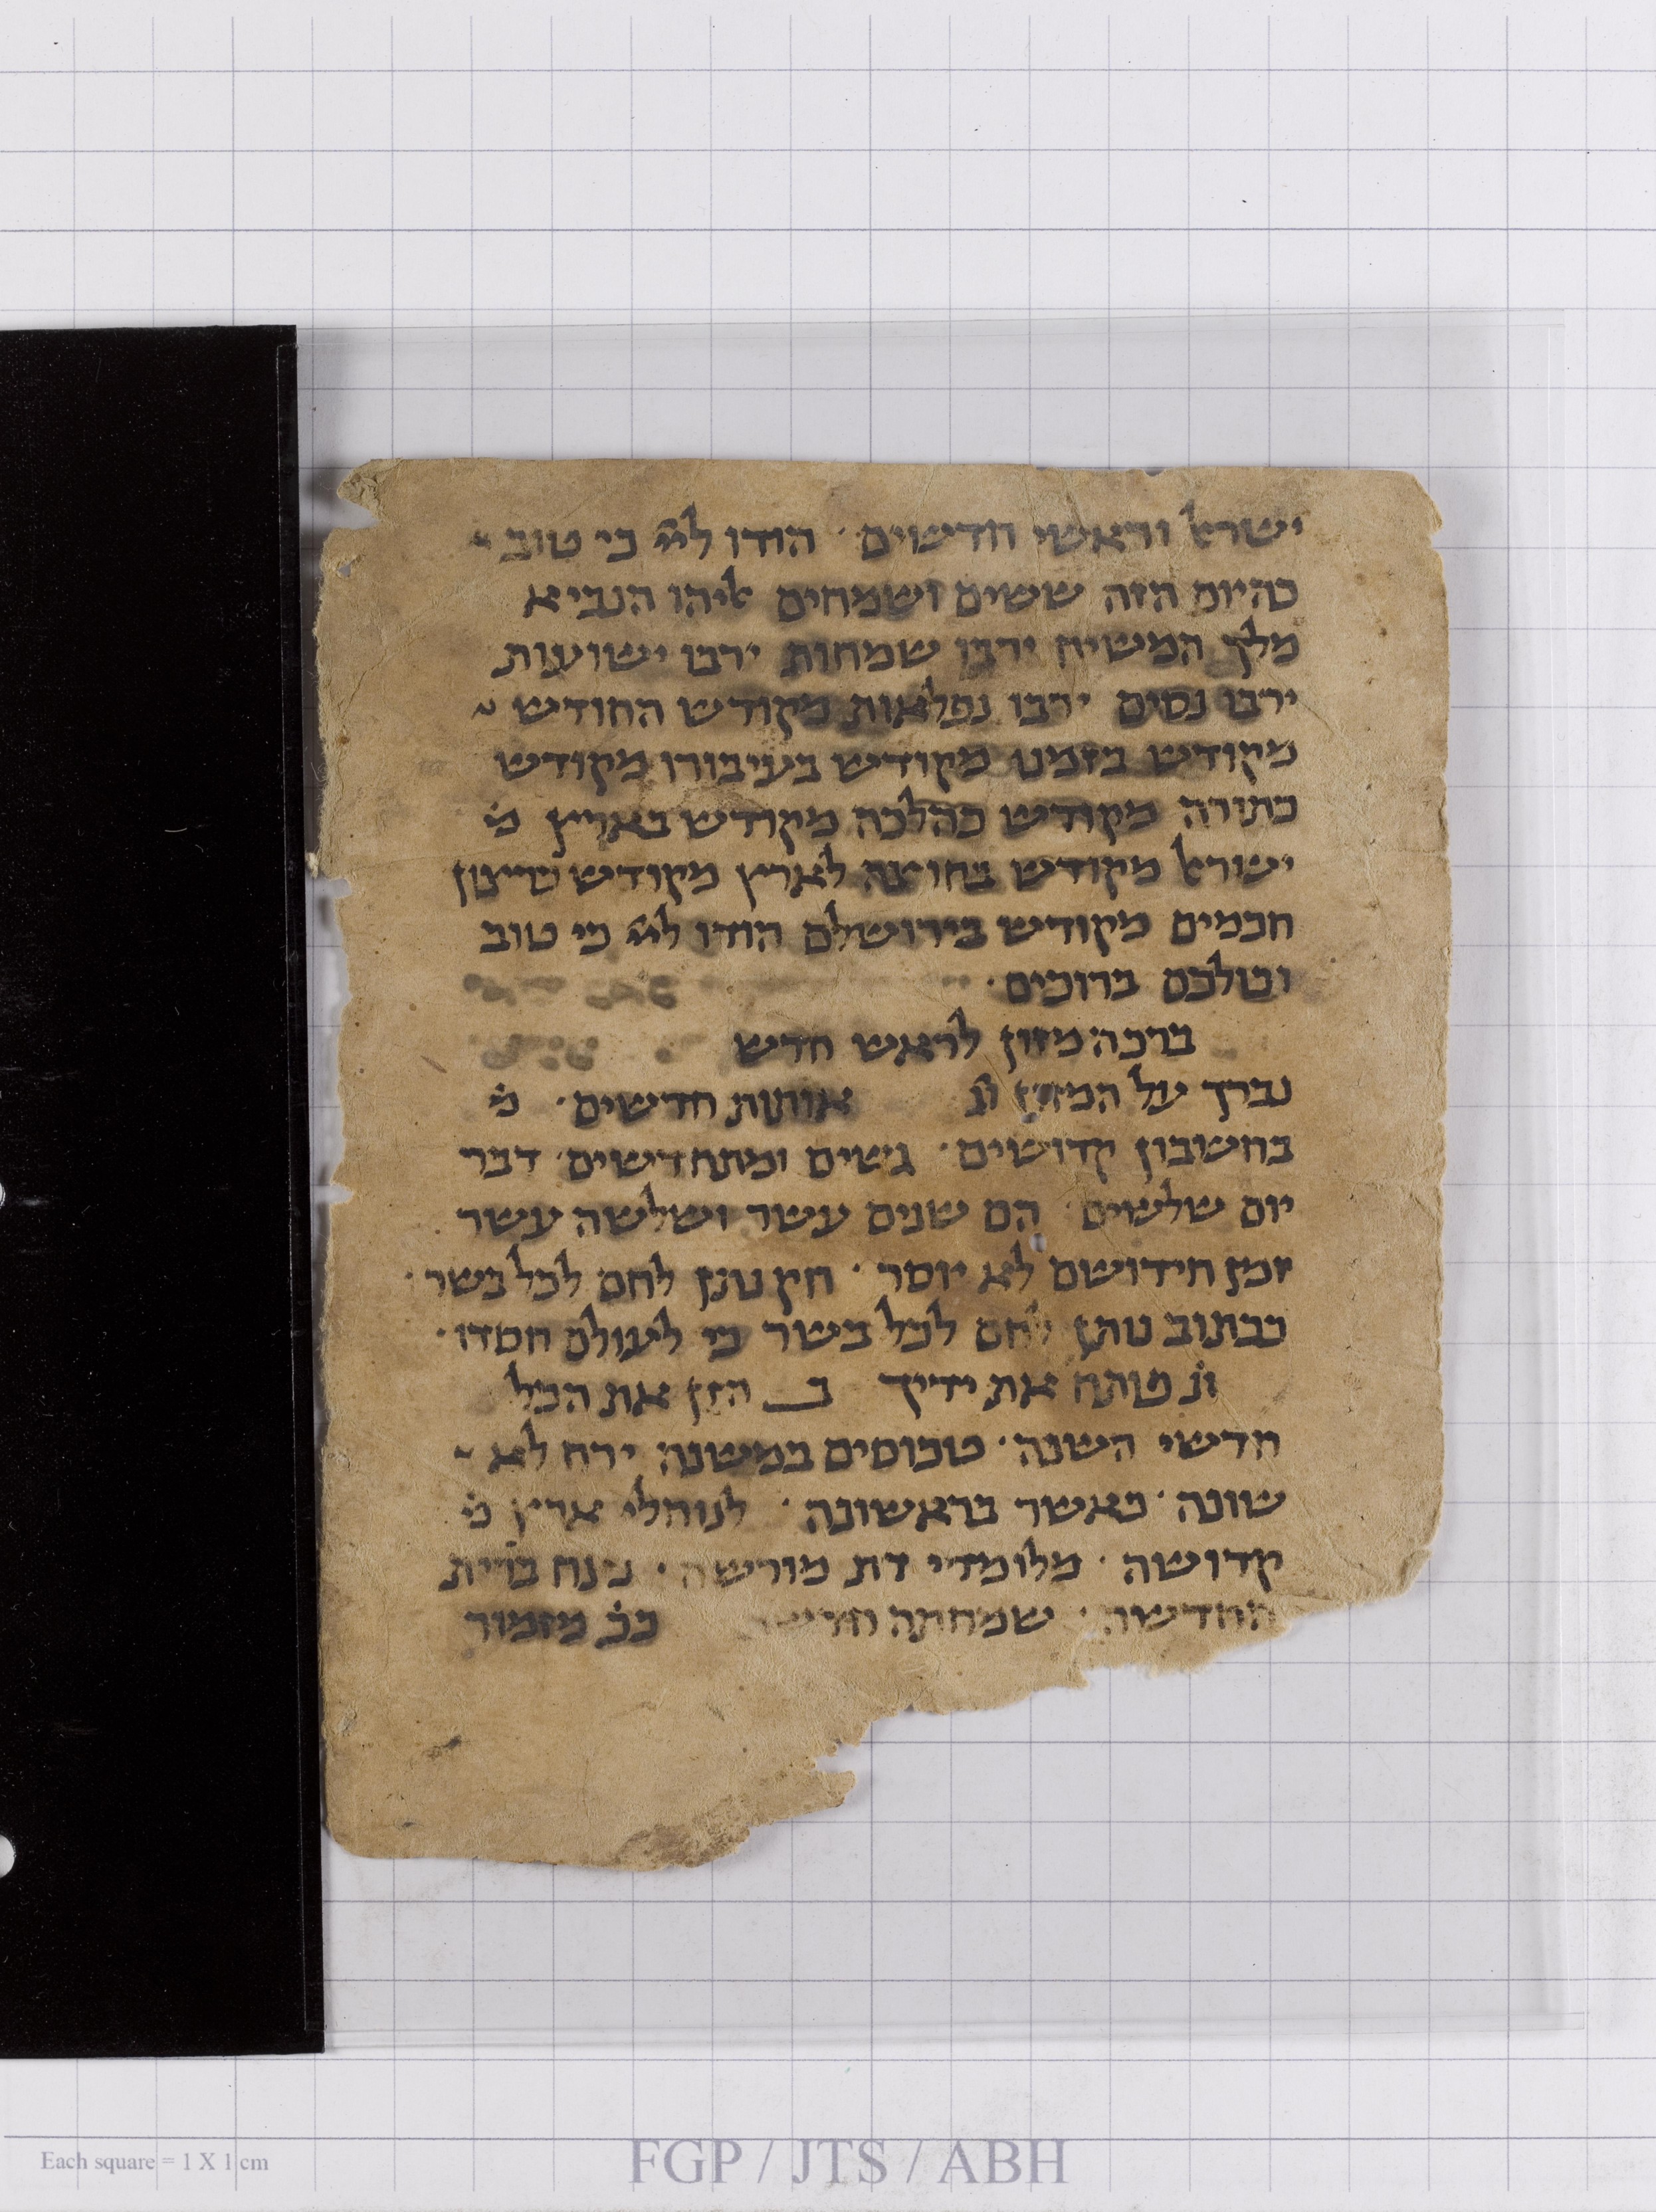 ישראל וראשי חדשים · הודו לייי כי טוב
כהיום הזה ששים ושמחים אליהו הנביא
מלך המשיח ירבו שמחות ירבו ישועות
ירבו נסים ירבו נפלאות מקודש החודש
מקודש בזמנו מקודש בעיבורו מקודש
כתורה מקודש כהלכה מקודש בארץ מ֗
ישראל מקודש בחוצה לארץ מקודש
חכמים מקודש בירושלם הודו לייי כי טוב
וכולכם ברוכים ·
ברכה מזון לראש חדש
נברך על המזון אותות חדשים · מ֗
בחשבון קדושים · גשים ומתחדשים דבר
יום שלשים הם שנים עשר ושלשה עשר
זמן חידושם לא יוסר · חק נותן לחם לכל בשר ·
ככתוב נותן לחם לכל בשר כי לעולם חסדו ·
ונ֗ פותח את ידיך ב הזן את הכל
חדשי השנה · טכוסים במשנה ירח לא
שונה · כאשר בראשונה · לנוחלי ארץ מ֗
קדושה · מלומדי דת מורשה · ברית
החדשה · שמחתה ככ֗ מזמור
Each square = 1 X 1 cm
FGP / JTS / ABH